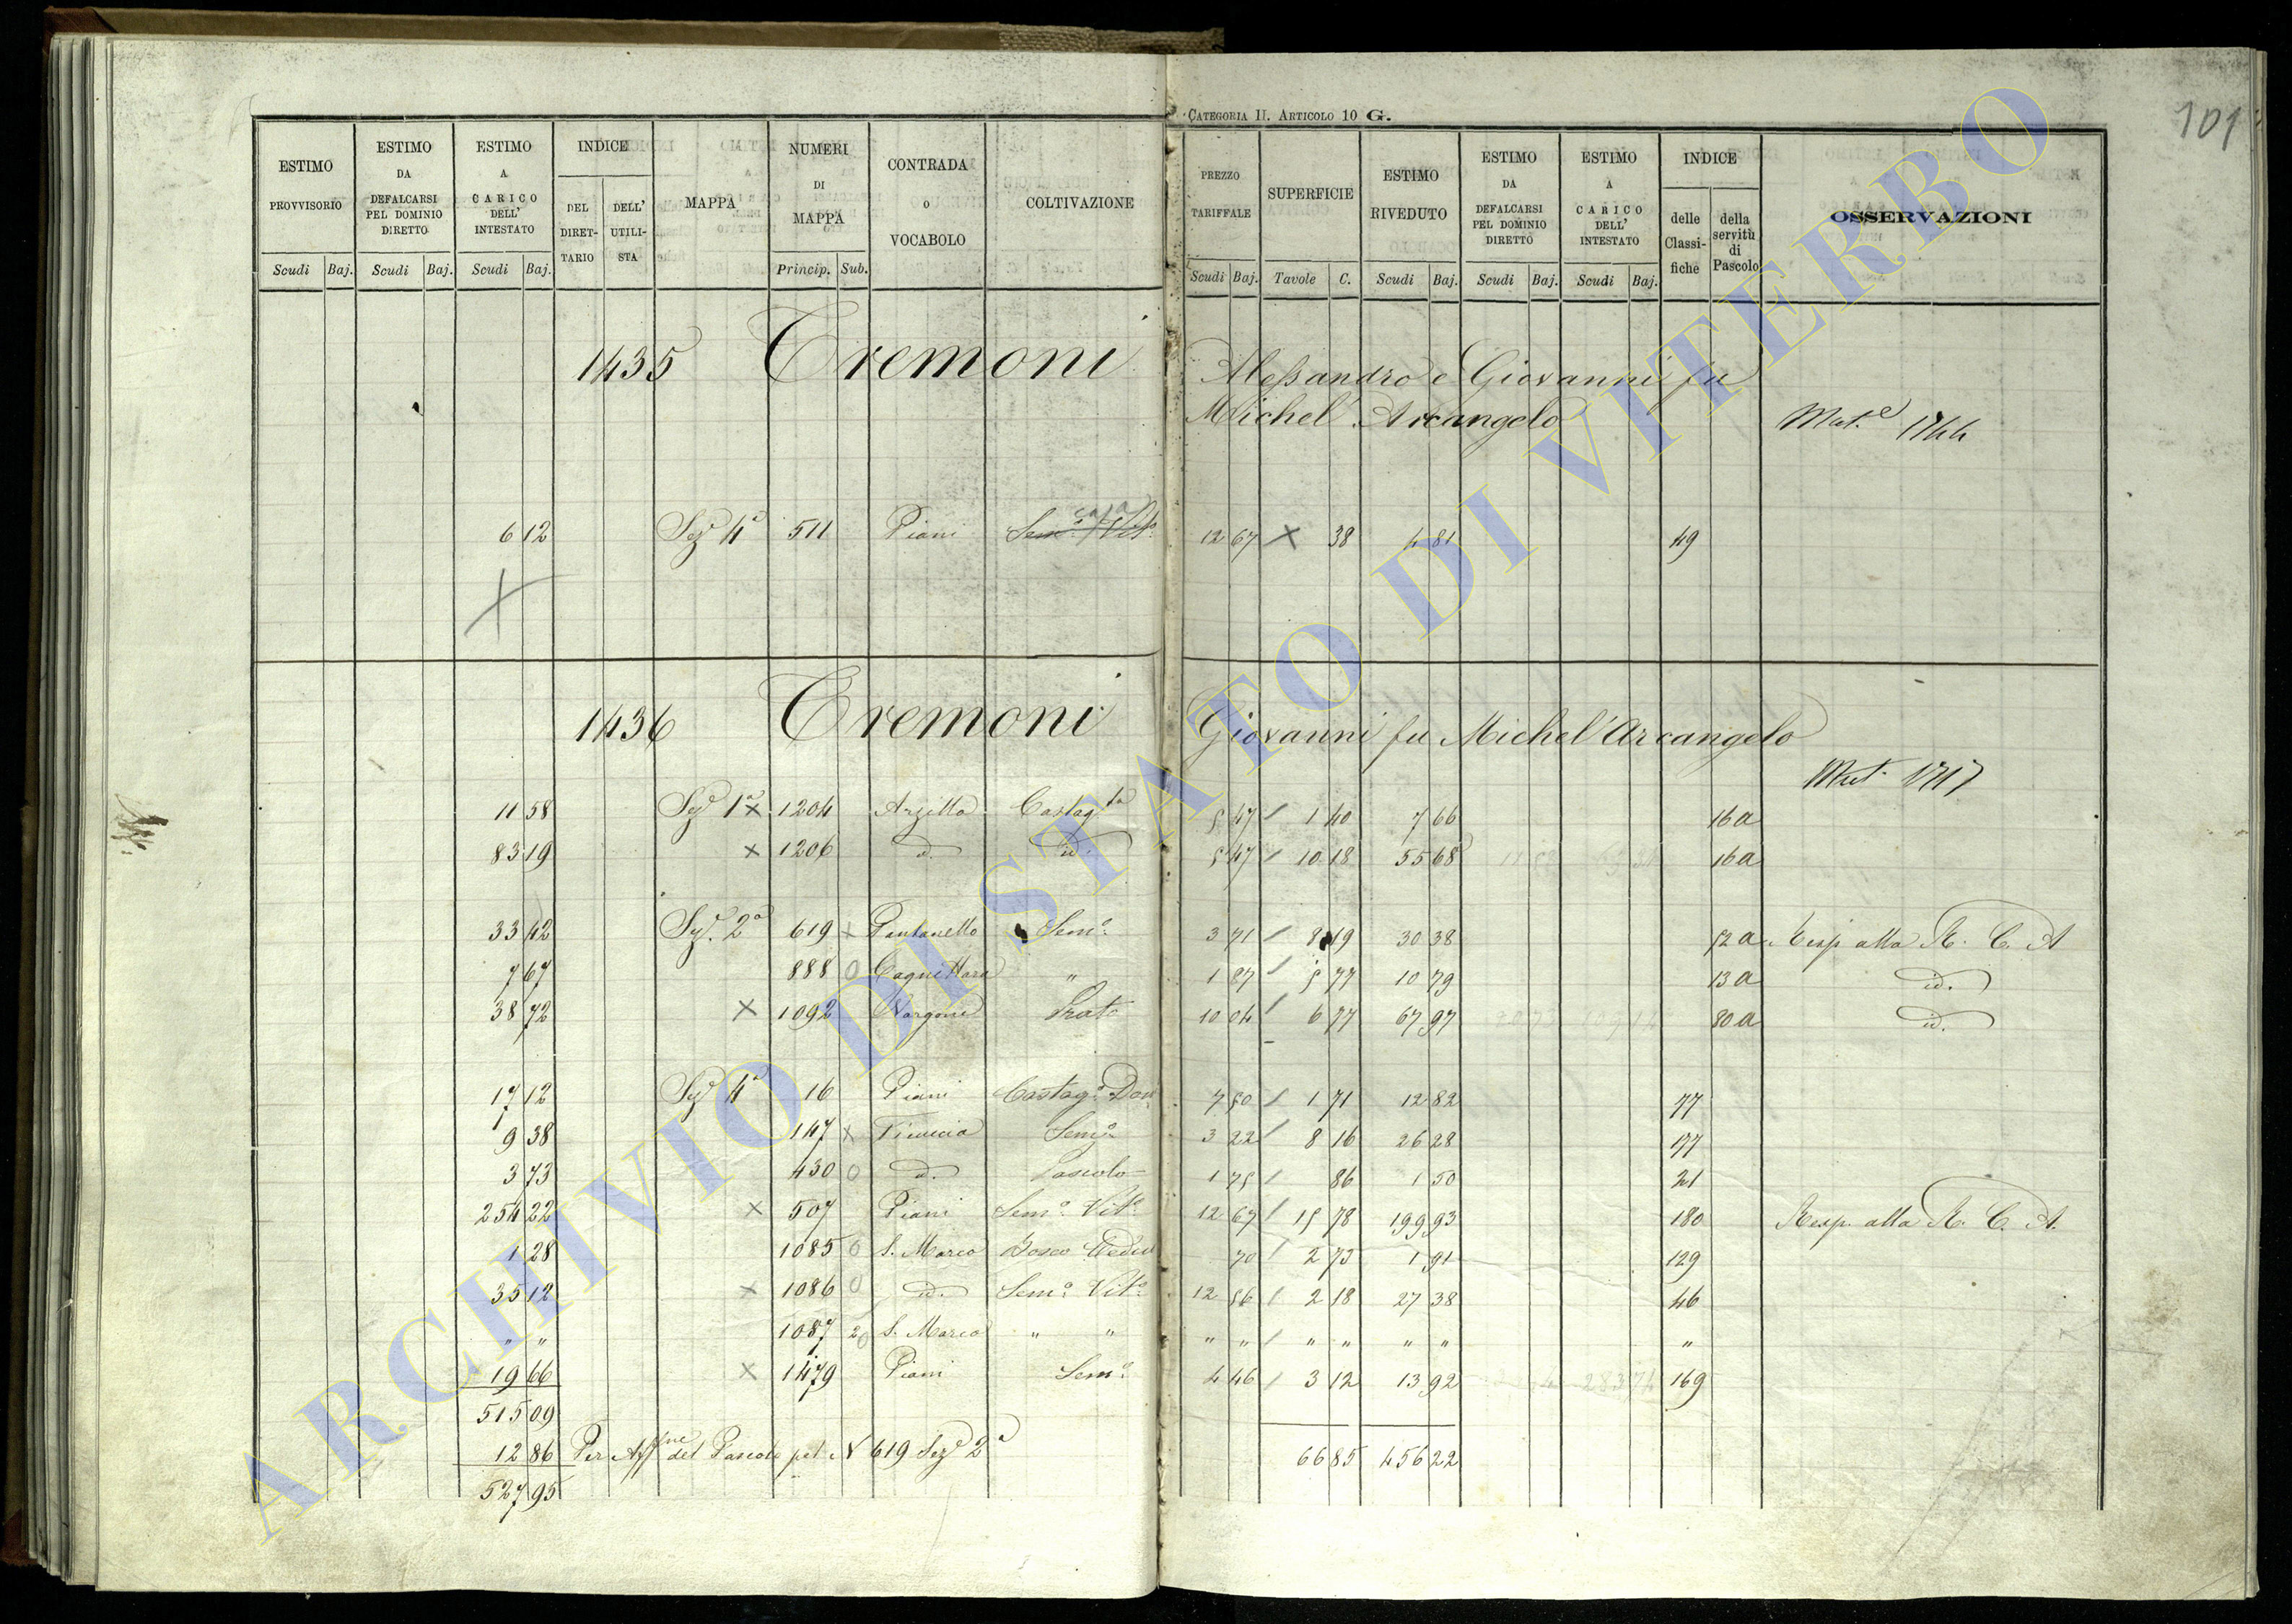 CATEGORIA II. ARTICOLO 10 G.
101
ESTIMO PROVVISORIO
ESTIMO DA DEFALCARSI PEL DOMINIO DIRETTO
ESTIMO A CARICO DELL' INTESTATO
INDICE
DEL DIRETTARIO
DELL' UTILISTA
MAPPA
NUMERI DI MAPPA
CONTRADA O VOCABOLO
COLTIVAZIONE
PREZZO TARIFFALE
SUPERFICIE
ESTIMO RIVEDUTO
ESTIMO DA DEFALCARSI PEL DOMINIO DIRETTO
ESTIMO A CARICO DELL' INTESTATO
INDICE
delle Classifiche
della servitù di Pascolo
OSSERVAZIONI
Scudi Baj. Scudi Baj. Scudi Baj. Princip. Sub. Scudi Baj. Tavole C. Scudi Baj. Scudi Baj. Scudi Baj.
1435 Tremoni Alessandro e Giovanni fu
Michel'Arcangelo
Mut.e 1744
6 12 Sez.e 4a 511 Piani Sem.o Vit.o 12 67 × 38 4 81 49
1436 Tremoni Giovanni fu Michel'Arcangelo
Mut. 1717
11 58 Sez.e 1a × 1204 Argitta Castag.ta 5 47 / 1 40 7 66 16 a
83 19 × 1206 id. id. 5 47 / 10 18 55 68 16 a
33 42 Sez.e 2a 619 × Pantanello Sem.o 3 71 / 8 19 30 38 52 a Resp. alla R. C. A
7 67 888 0 " 1 87 / 5 77 10 79 13 a id.
38 72 × 1092 Prato 10 04 / 6 77 67 97 80 a id.
17 12 Sez.e 4a 16 Piani Castag.o Dom 7 50 / 1 71 12 82 77
9 38 147 × Ficuccia Sem.o 3 22 / 8 16 26 28 177
3 73 430 0 id. Pascolo 1 75 / 86 1 50 21
254 22 × 507 Piani Sem.o Vit.o 12 67 / 15 78 199 93 180 Resp. alla R. C. A.
1 28 1085 0 S. Marco Bosco Ceduo 70 / 2 73 1 91 129
35 12 × 1086 0 id. Sem.o Vit.o 12 56 / 2 18 27 38 46
" " 1087 2 0 S. Marco " " " " / " " " " "
19 66 × 1479 Piani Sem.o 4 46 / 3 12 13 92 169
515 09
12 86 Per Aff.ne del Pascolo pel N 619 Sez.e 2a 66 85 456 22
527 95
ARCHIVIO DI STATO DI VITERBO